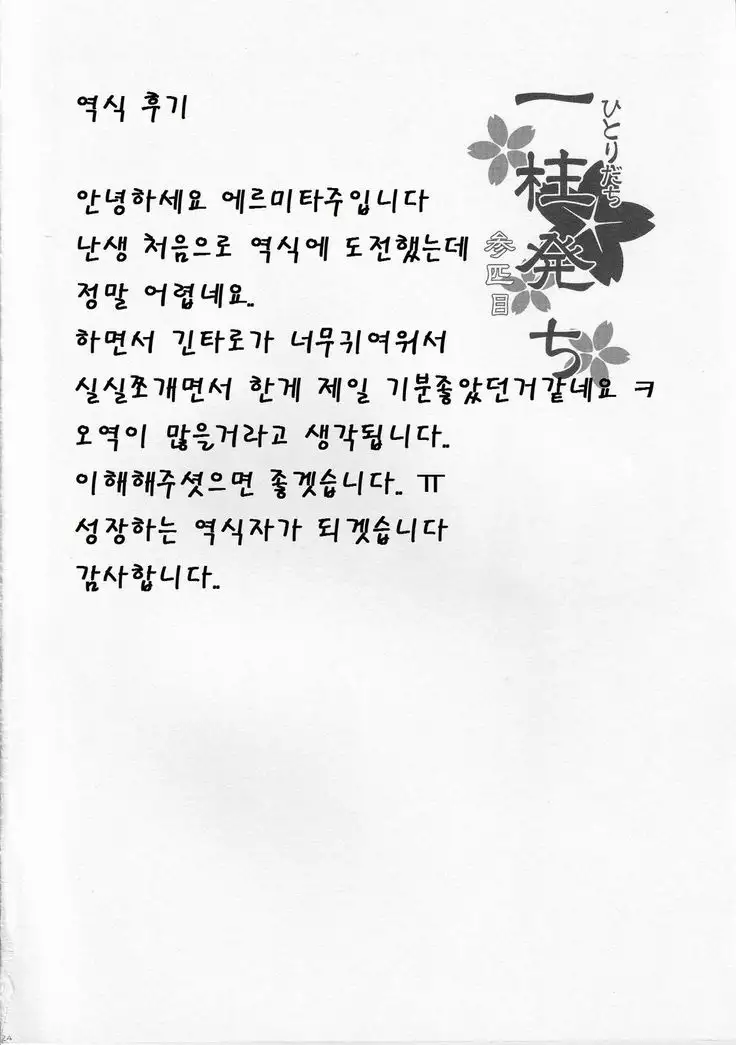 역식 후기
안녕하세요 에르미타주입니다
난생 처음으로 역식에 도전했는데
정말 어렵네요..
하면서 긴타로가 너무귀여워서
실실쪼개면서 한게 제일 기분좋았던거같네요 ㅋ
오역이 많을거라고 생각됩니다..
이해해주셧으면 좋겟습니다.. ㅠ
성장하는 역식자가 되겟습니다
감사합니다..
一桂発ち
ひとりだち
参匹目
24